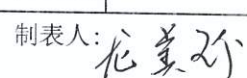 制表人：龙美玲